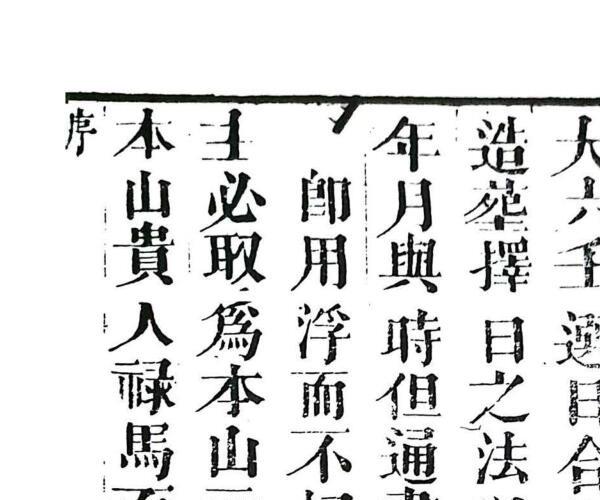 大六壬選日合
造塟擇日之法
年月與時但通書
卽用浮而不
主必取爲本山
本山貴人祿馬
序